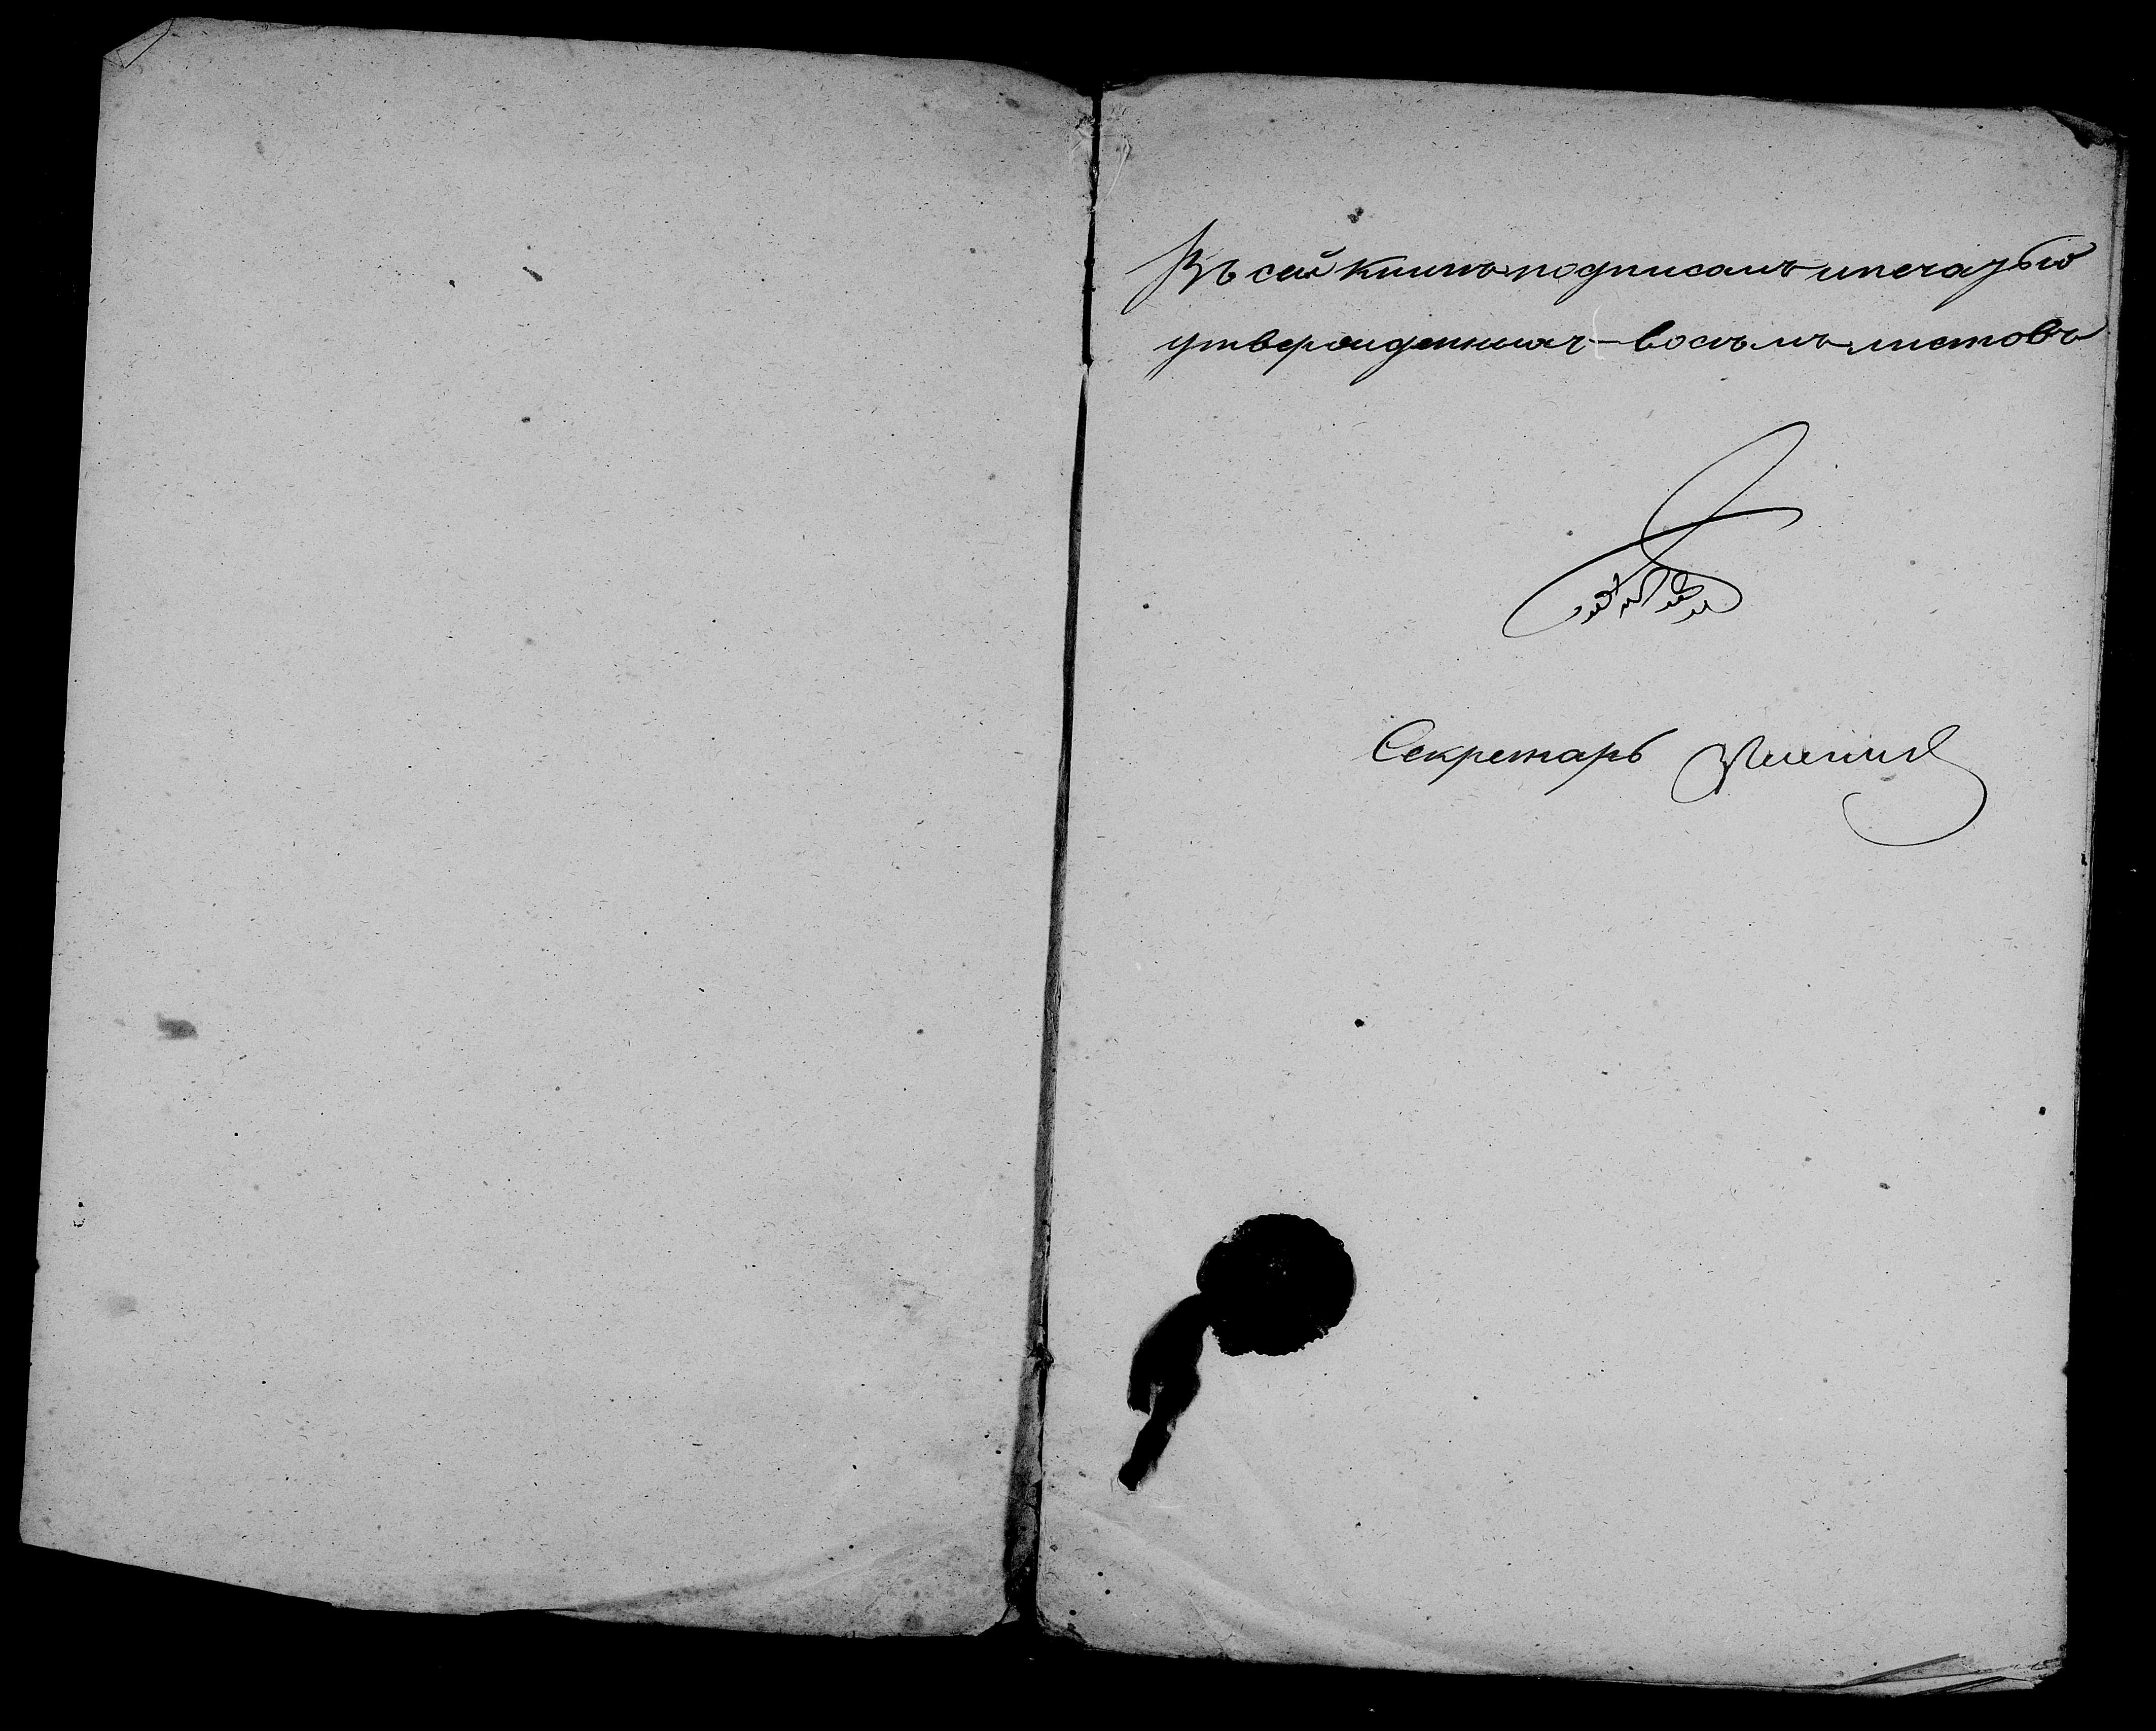 Въ сей книге подписанъ и печатью
утвержденныхъ – восемь листовъ
Секретарь